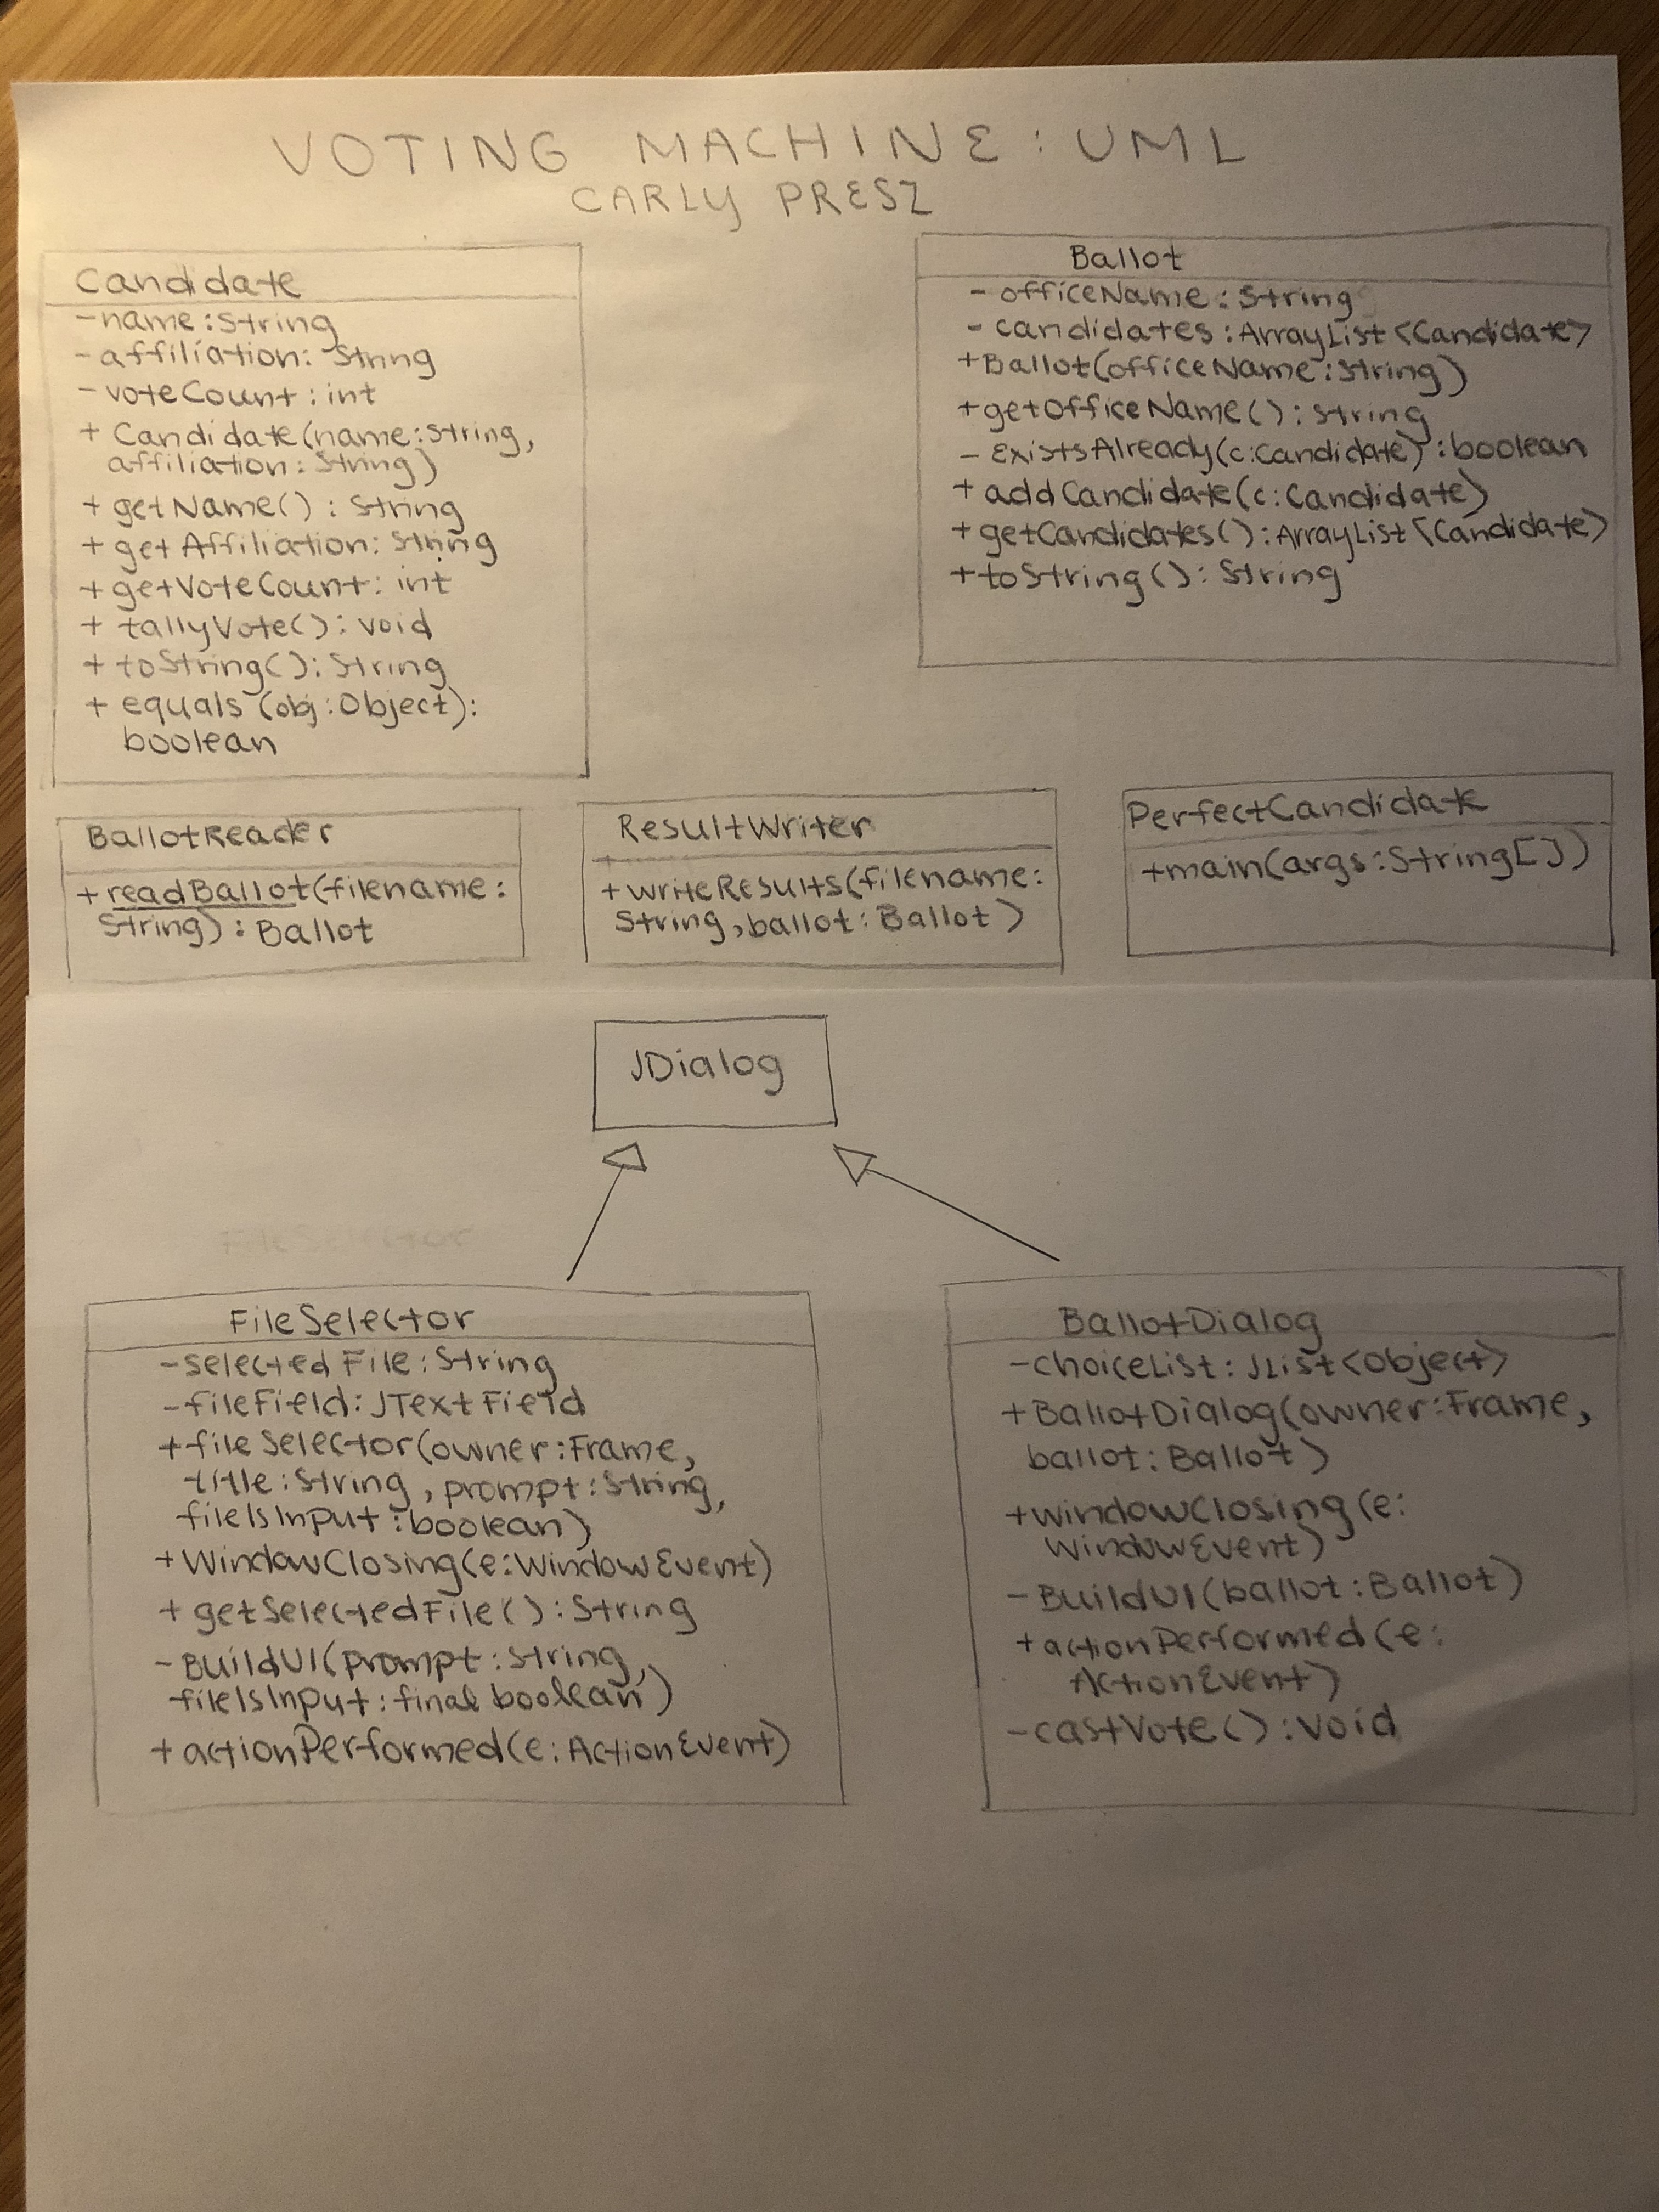 VOTING MACHINE: UML
CARLY PRESZ
Candidate
-name:String
-affiliation: String
-voteCount: int
+ Candidate(name:String,
affiliation: String)
+ getName() : String
+ getAffiliation: String
+ getVoteCount: int
+ tallyVote(): void
+ toString(): String
+ equals (obj:Object):
boolean
Ballot
-officeName: String
-candidates: ArrayList<Candidate>
+Ballot(officeName:String)
+getOfficeName(): String
-existsAlready(c:Candidate):boolean
+addCandidate(c:Candidate)
+getCandidates(): ArrayList<Candidate>
+toString(): String
BallotReader
+readBallot(filename:
String): Ballot
ResultWriter
+writeResults(filename:
String, ballot: Ballot)
PerfectCandidate
+main(args:String[])
JDialog
FileSelector
FileSelector
-selectedFile:String
-fileField: JTextField
+fileSelector(owner:Frame,
title:String, prompt:String,
fileIsInput:boolean)
+WindowClosing(e:WindowEvent)
+getSelectedFile(): String
-BuildUI(prompt:String,
fileIsInput:final boolean)
+actionPerformed(e:ActionEvent)
BallotDialog
-choiceList: JList<Object>
+BallotDialog(owner:Frame,
ballot: Ballot)
+windowClosing(e:
WindowEvent)
-BuildUI(ballot:Ballot)
+actionPerformed(e:
ActionEvent)
-castVote(): void